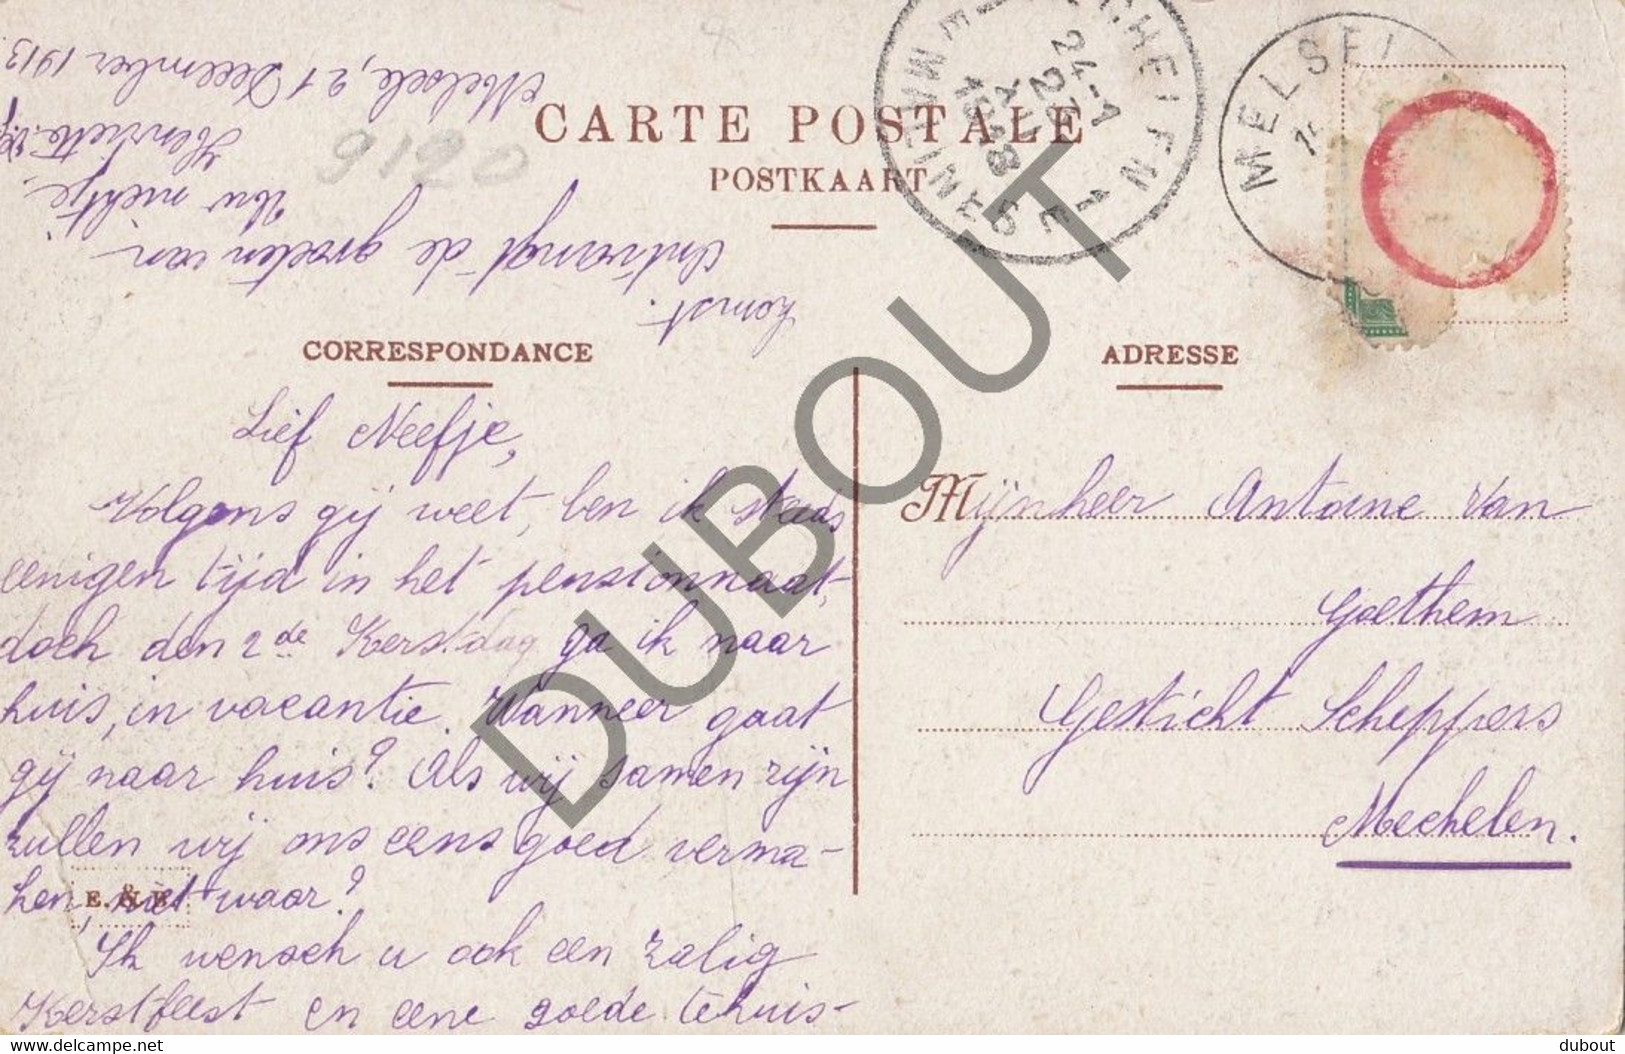 CARTE POSTALE
POSTKAART
CORRESPONDANCE
Lief Neefje,
Volgens gij weet, ben ik steeds
eenigen tijd in het pensionnaat,
doch den 2de Kerstdag ga ik naar
huis, in vacantie. Wanneer gaat
gij naar huis? Als wij samen zijn
zullen wij ons eens goed verma-
hen, niet waar?
Ik wensch u ook een zalig
Kerstfeest en eene goede tehuis-
komst.
Ontvangt de groeten van
Uw nichtje,
Henriette
Melsele, 21 December 1913
9120
E. & B.
ADRESSE
Mijnheer Antoine Van
Goethem
Gesticht Scheppers
Mechelen.
MELSE
24-1
22
XII
1913
DUBOUT
www.delcampe.net
dubout